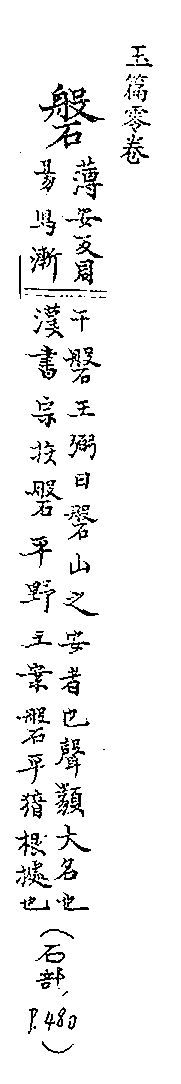 玉篇零卷
磐
薄安反周
易鳥漸
于磐王弼曰磐山之安者也聲類大名也
漢書宗族磐平野王案磐平猶根據也
(石部,
P.480)